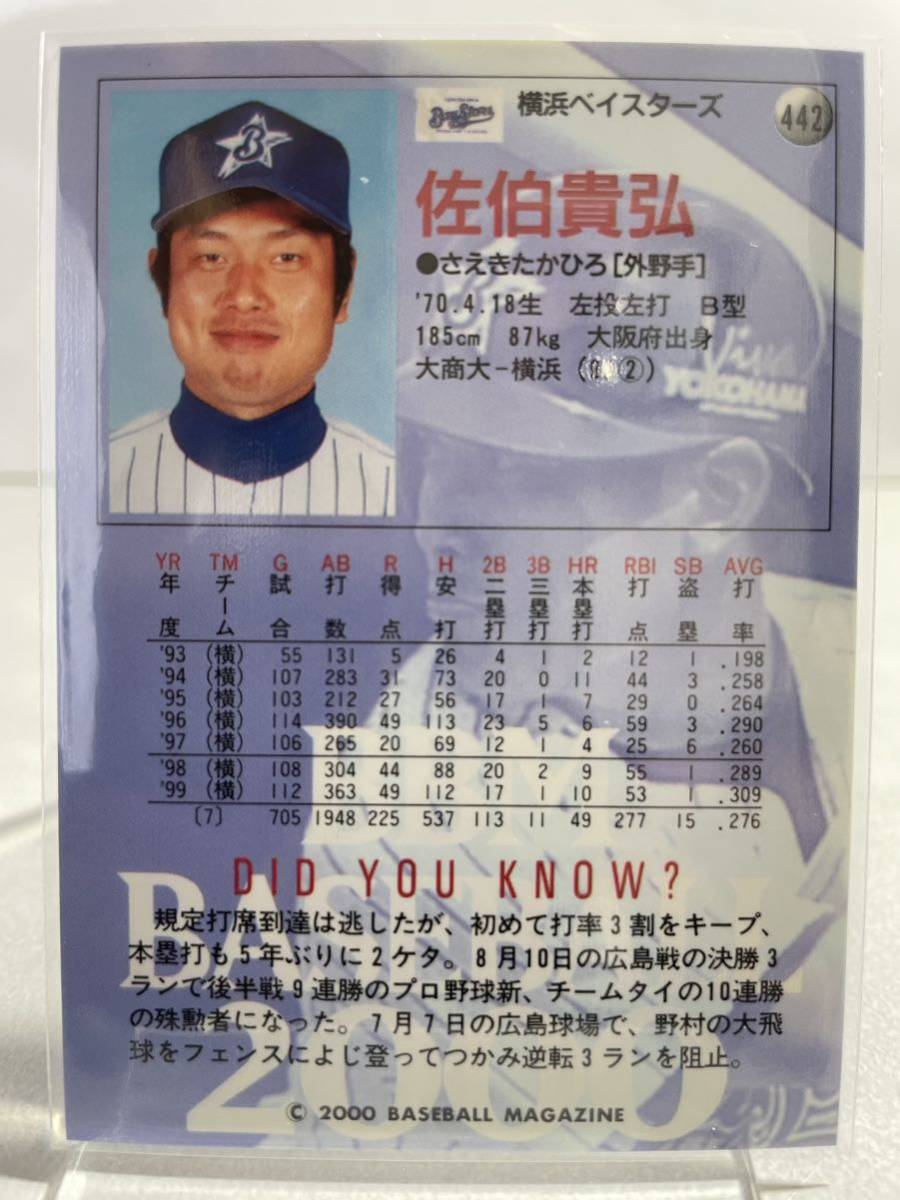 横浜ベイスターズ
442
佐伯貴弘
●さえきたかひろ[外野手]
'70.4.18生 左投左打 B型
185cm 87kg 大阪府出身
大商大-横浜 (②)
B
BayStars
Viva
YOKOHAMA
YR TM G AB R H 2B 3B HR RBI SB AVG
年度 チーム 試合 打数 得点 安打 二塁打 三塁打 本塁打 打点 盗塁 打率
'93 (横) 55 131 5 26 4 1 2 12 1 .198
'94 (横) 107 283 31 73 20 0 11 44 3 .258
'95 (横) 103 212 27 56 17 1 7 29 0 .264
'96 (横) 114 390 49 113 23 5 6 59 3 .290
'97 (横) 106 265 20 69 12 1 4 25 6 .260
'98 (横) 108 304 44 88 20 2 9 55 1 .289
'99 (横) 112 363 49 112 17 1 10 53 1 .309
〔7〕 705 1948 225 537 113 11 49 277 15 .276
DID YOU KNOW?
規定打席到達は逃したが、初めて打率3割をキープ、
本塁打も5年ぶりに2ケタ。8月10日の広島戦の決勝3
ランで後半戦9連勝のプロ野球新、チームタイの10連勝
の殊勲者になった。7月7日の広島球場で、野村の大飛
球をフェンスによじ登ってつかみ逆転3ランを阻止。
BBM
BASEBALL
2000
© 2000 BASEBALL MAGAZINE